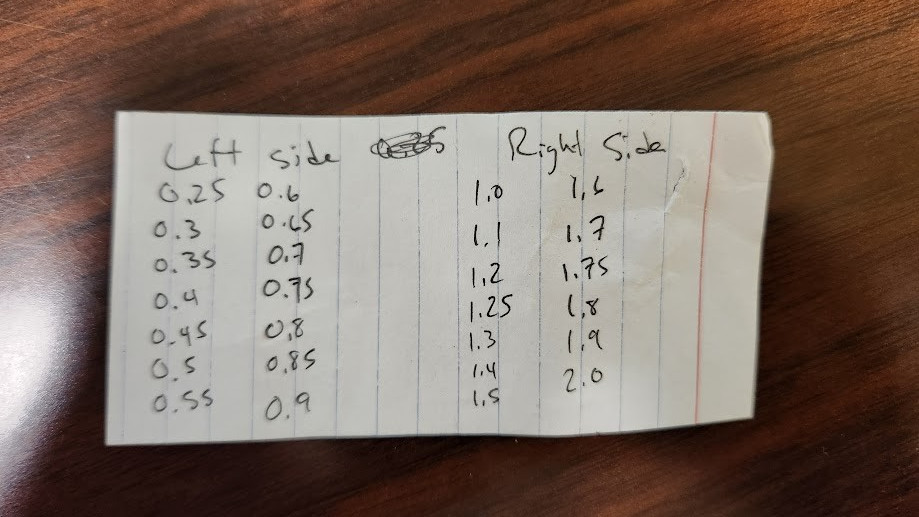 Left side Right Side
0.25 0.6 1.0 1.6
0.3 0.65 1.1 1.7
0.35 0.7 1.2 1.75
0.4 0.75 1.25 1.8
0.45 0.8 1.3 1.9
0.5 0.85 1.4 2.0
0.55 0.9 1.5